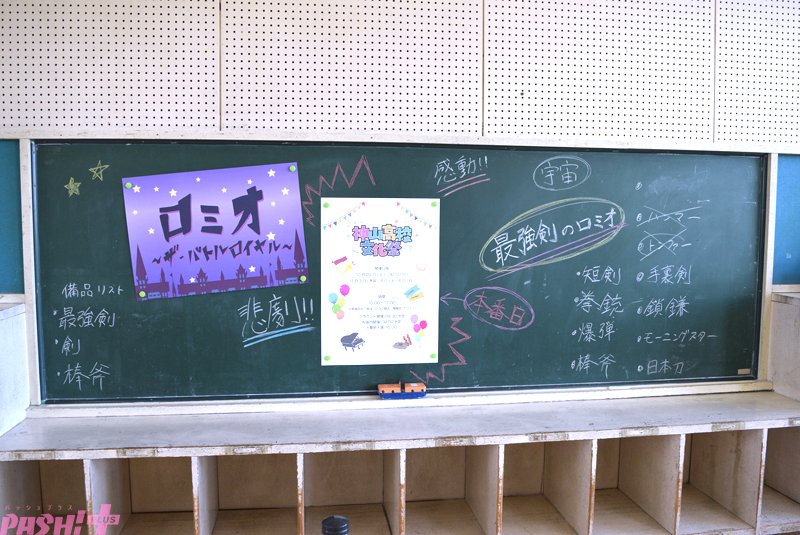 感動!!
宇宙
ロミオ
～ザ・バトルロイヤル～
神山高校
文化祭
最強剣のロミオ
備品リスト
・最強剣
・剣
・棒斧
悲劇!!!
本番日
・短剣
・拳銃
・爆弾
・棒斧
・ハンマー
・トンマー
・手裏剣
・鎖鎌
・モーニングスター
・日本刀
パッシュプラス
PASH!+
PLUS